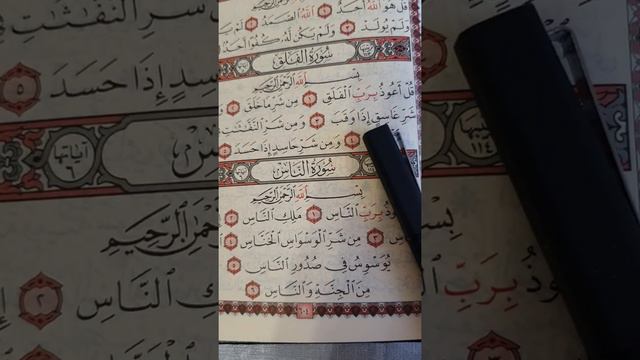 قُلْ هُوَ ٱللَّهُ أَحَدٌ ١ ٱللَّهُ ٱلصَّمَدُ ٢ لَمْ
وَلَمْ يُولَدْ ٣ وَلَمْ يَكُن لَّهُۥ كُفُوًا أَحَدٌۢ
سُورَةُ الفَلَقِ
بِسْمِ ٱللَّهِ ٱلرَّحْمَٰنِ ٱلرَّحِيمِ
قُلْ أَعُوذُ بِرَبِّ ٱلْفَلَقِ ١ مِن شَرِّ مَا خَلَقَ ٢
شَرِّ غَاسِقٍ إِذَا وَقَبَ ٣ وَمِن شَرِّ ٱلنَّفَّٰثَٰتِ
٤ وَمِن شَرِّ حَاسِدٍ إِذَا حَسَدَ ٥
سُورَةُ النَّاسِ
بِسْمِ ٱللَّهِ ٱلرَّحْمَٰنِ ٱلرَّحِيمِ
بِرَبِّ ٱلنَّاسِ ١ مَلِكِ ٱلنَّاسِ ٢
٣ مِن شَرِّ ٱلْوَسْوَاسِ ٱلْخَنَّاسِ ٤
يُوَسْوِسُ فِى صُدُورِ ٱلنَّاسِ ٥
مِنَ ٱلْجِنَّةِ وَٱلنَّاسِ ٦
٦٠٤